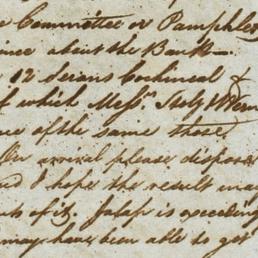 Committee or Pamphlet
about the Bank
12 Serons Cochineal &
of which Mess.rs
of the same those
arrival please dispose
I hope the result may
of it. is exceeding
may have been able to get